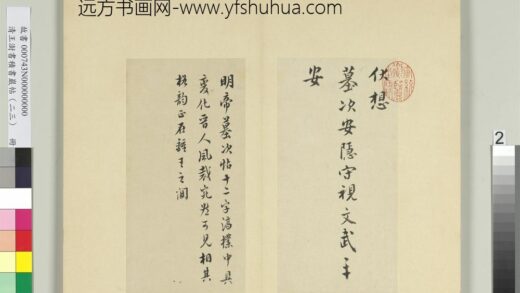 远方书画网-www.yfshuhua.com
伏想
墓次安隱守視文武平
安
明帝墓次帖十二字淳樸中具
變化晉人風裁宛然可見相其
格韵正在鍾王之間
故書 000743N000000000
清王澍書積書巖帖(二三) 冊
2